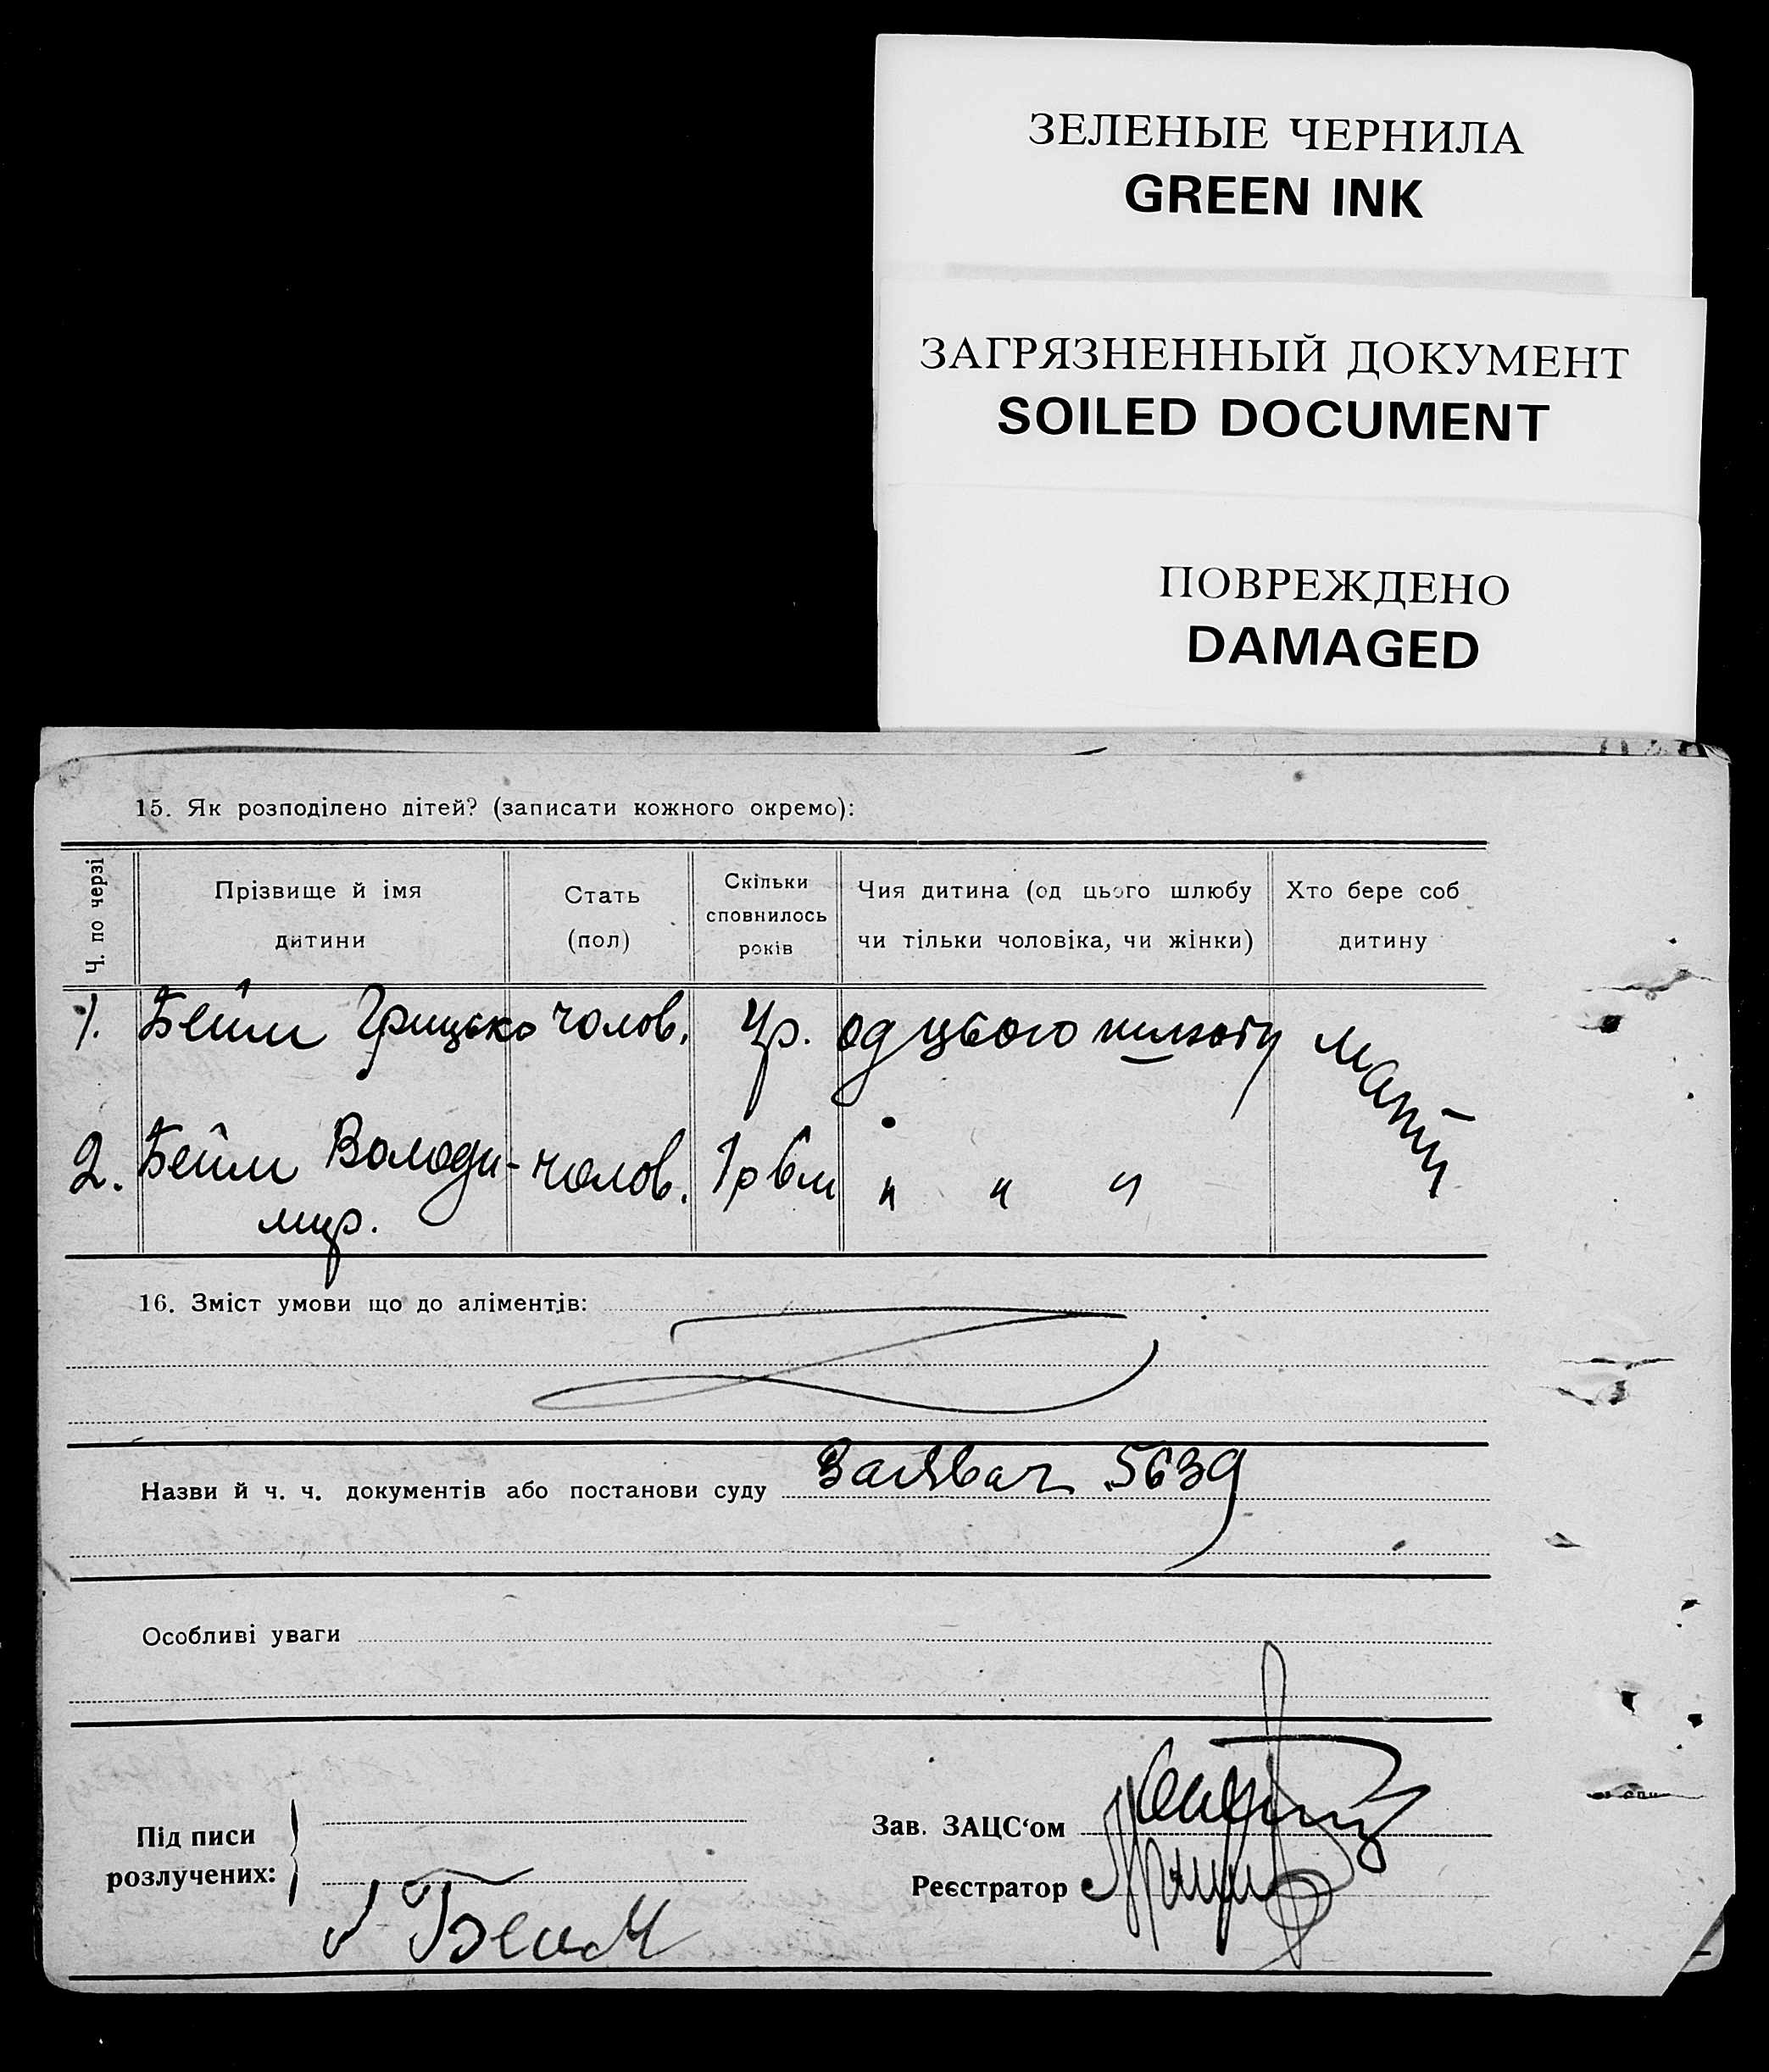 ЗЕЛЕНЫЕ ЧЕРНИЛА
GREEN INK
ЗАГРЯЗНЕННЫЙ ДОКУМЕНТ
SOILED DOCUMENT
ПОВРЕЖДЕНО
DAMAGED
15. Як розподілено дітей? (записати кожного окремо):
Ч. по черзі
Прізвище й імя
дитини
Стать
(пол)
Скільки
сповнилось
років
Чия дитина (од цього шлюбу
чи тільки чоловіка, чи жінки)
Хто бере соб
дитину
1. Бейм Грицько чолов. 4р. од цього шлюбу мати
2. Бейм Володи- чолов. 1р 6м " " "
мир.
16. Зміст умови що до аліментів:
Назви й ч. ч. документів або постанови суду 5639
Особливі уваги
Під писи
розлучених:
Бейм
Зав. ЗАЦС‘ом
Реєстратор